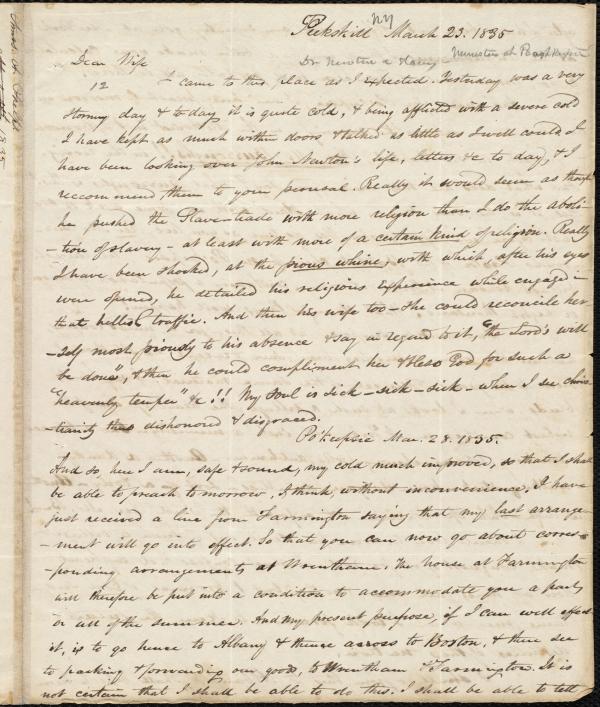 Peekskill NY March 23. 1835
Dear Wife Dr Newton a Slaver Ministers at Poughkeepsie
12 I came to this place as I expected. Yesterday was a very
stormy day & to day it is quite cold, & being afflicted with a severe cold
I have kept as much within doors & talked as little as I well could. I
have been looking over John Newton's life, letters &c to day, & I
reccommend them to your perusal. Really it would seem as though
he pushed the Slave-trade with more religion than I do the aboli-
-tion of slavery - at least with more of a certain kind of religion. Really
I have been shocked, at the pious whine, with which, after his eyes
were opened, he detailed his religious experience while engaged in
that hellish traffic. And then his wife too - She could reconcile her-
-self most piously to his absence & say in regard to it, "the Lord's will
be done", & then he could compliment her & bless God for such a
"heavenly temper" &c!! My soul is sick - sick - sick - when I see chris-
-tianity thus dishonored & disgraced.
Po'keepsie Mar. 28. 1835.
And so here I am, safe & sound, my cold much improved, so that I shall
be able to preach tomorrow, I think, without inconvenience. I have
just received a line from Farmington saying that my last arrange-
-ment will go into effect. So that you can now go about corres-
-ponding arrangements at Wrentham. The house at Farmington
will therefore be put into a condition to accommodate you a part
or all of the summer. And my present purpose, if I can well effect
it, is to go hence to Albany & thence across to Boston, & there see
to packing & forwarding our goods, to Wrentham & Farmington. It is
not certain that I shall be able to do this. I shall be able to tell
1835